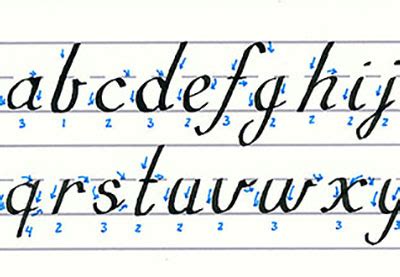 abcdefghij
3 1 2 3 2 2 2 2 2 2
qrstuvwxy
4 2 3 2 2 2 3 3